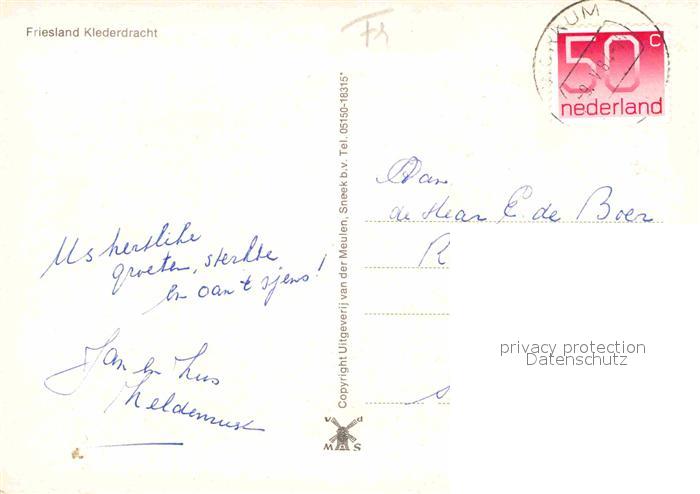 Friesland Klederdracht
Fr
WORKUM
50 c
nederland
Us hertlike
groeten, sterkte
en oan't sjens!
Jan en Lus
Copyright Uitgeverij van der Meulen, Sneek b.v. Tel. 05150-18315*
v d
M A S
Aan
de Hear E. de Boer
R
privacy protection
Datenschutz